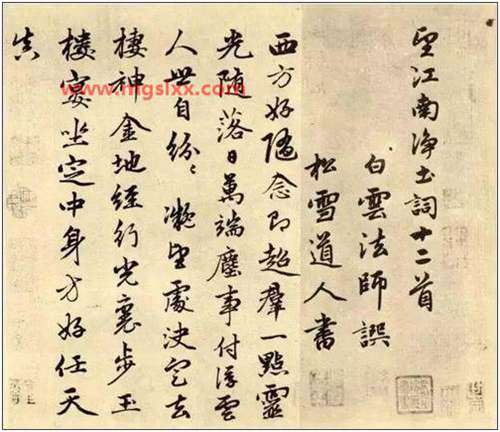 望江南净土詞十二首
白雲法師譔
松雪道人書
西方好随念即超羣一點靈
光随落日萬端塵事付浮雲
人世自紛〻凝望處決定去
棲神金地經行光裏步玉
樓宴坐定中身方好任天
真
www.mgslxx.com